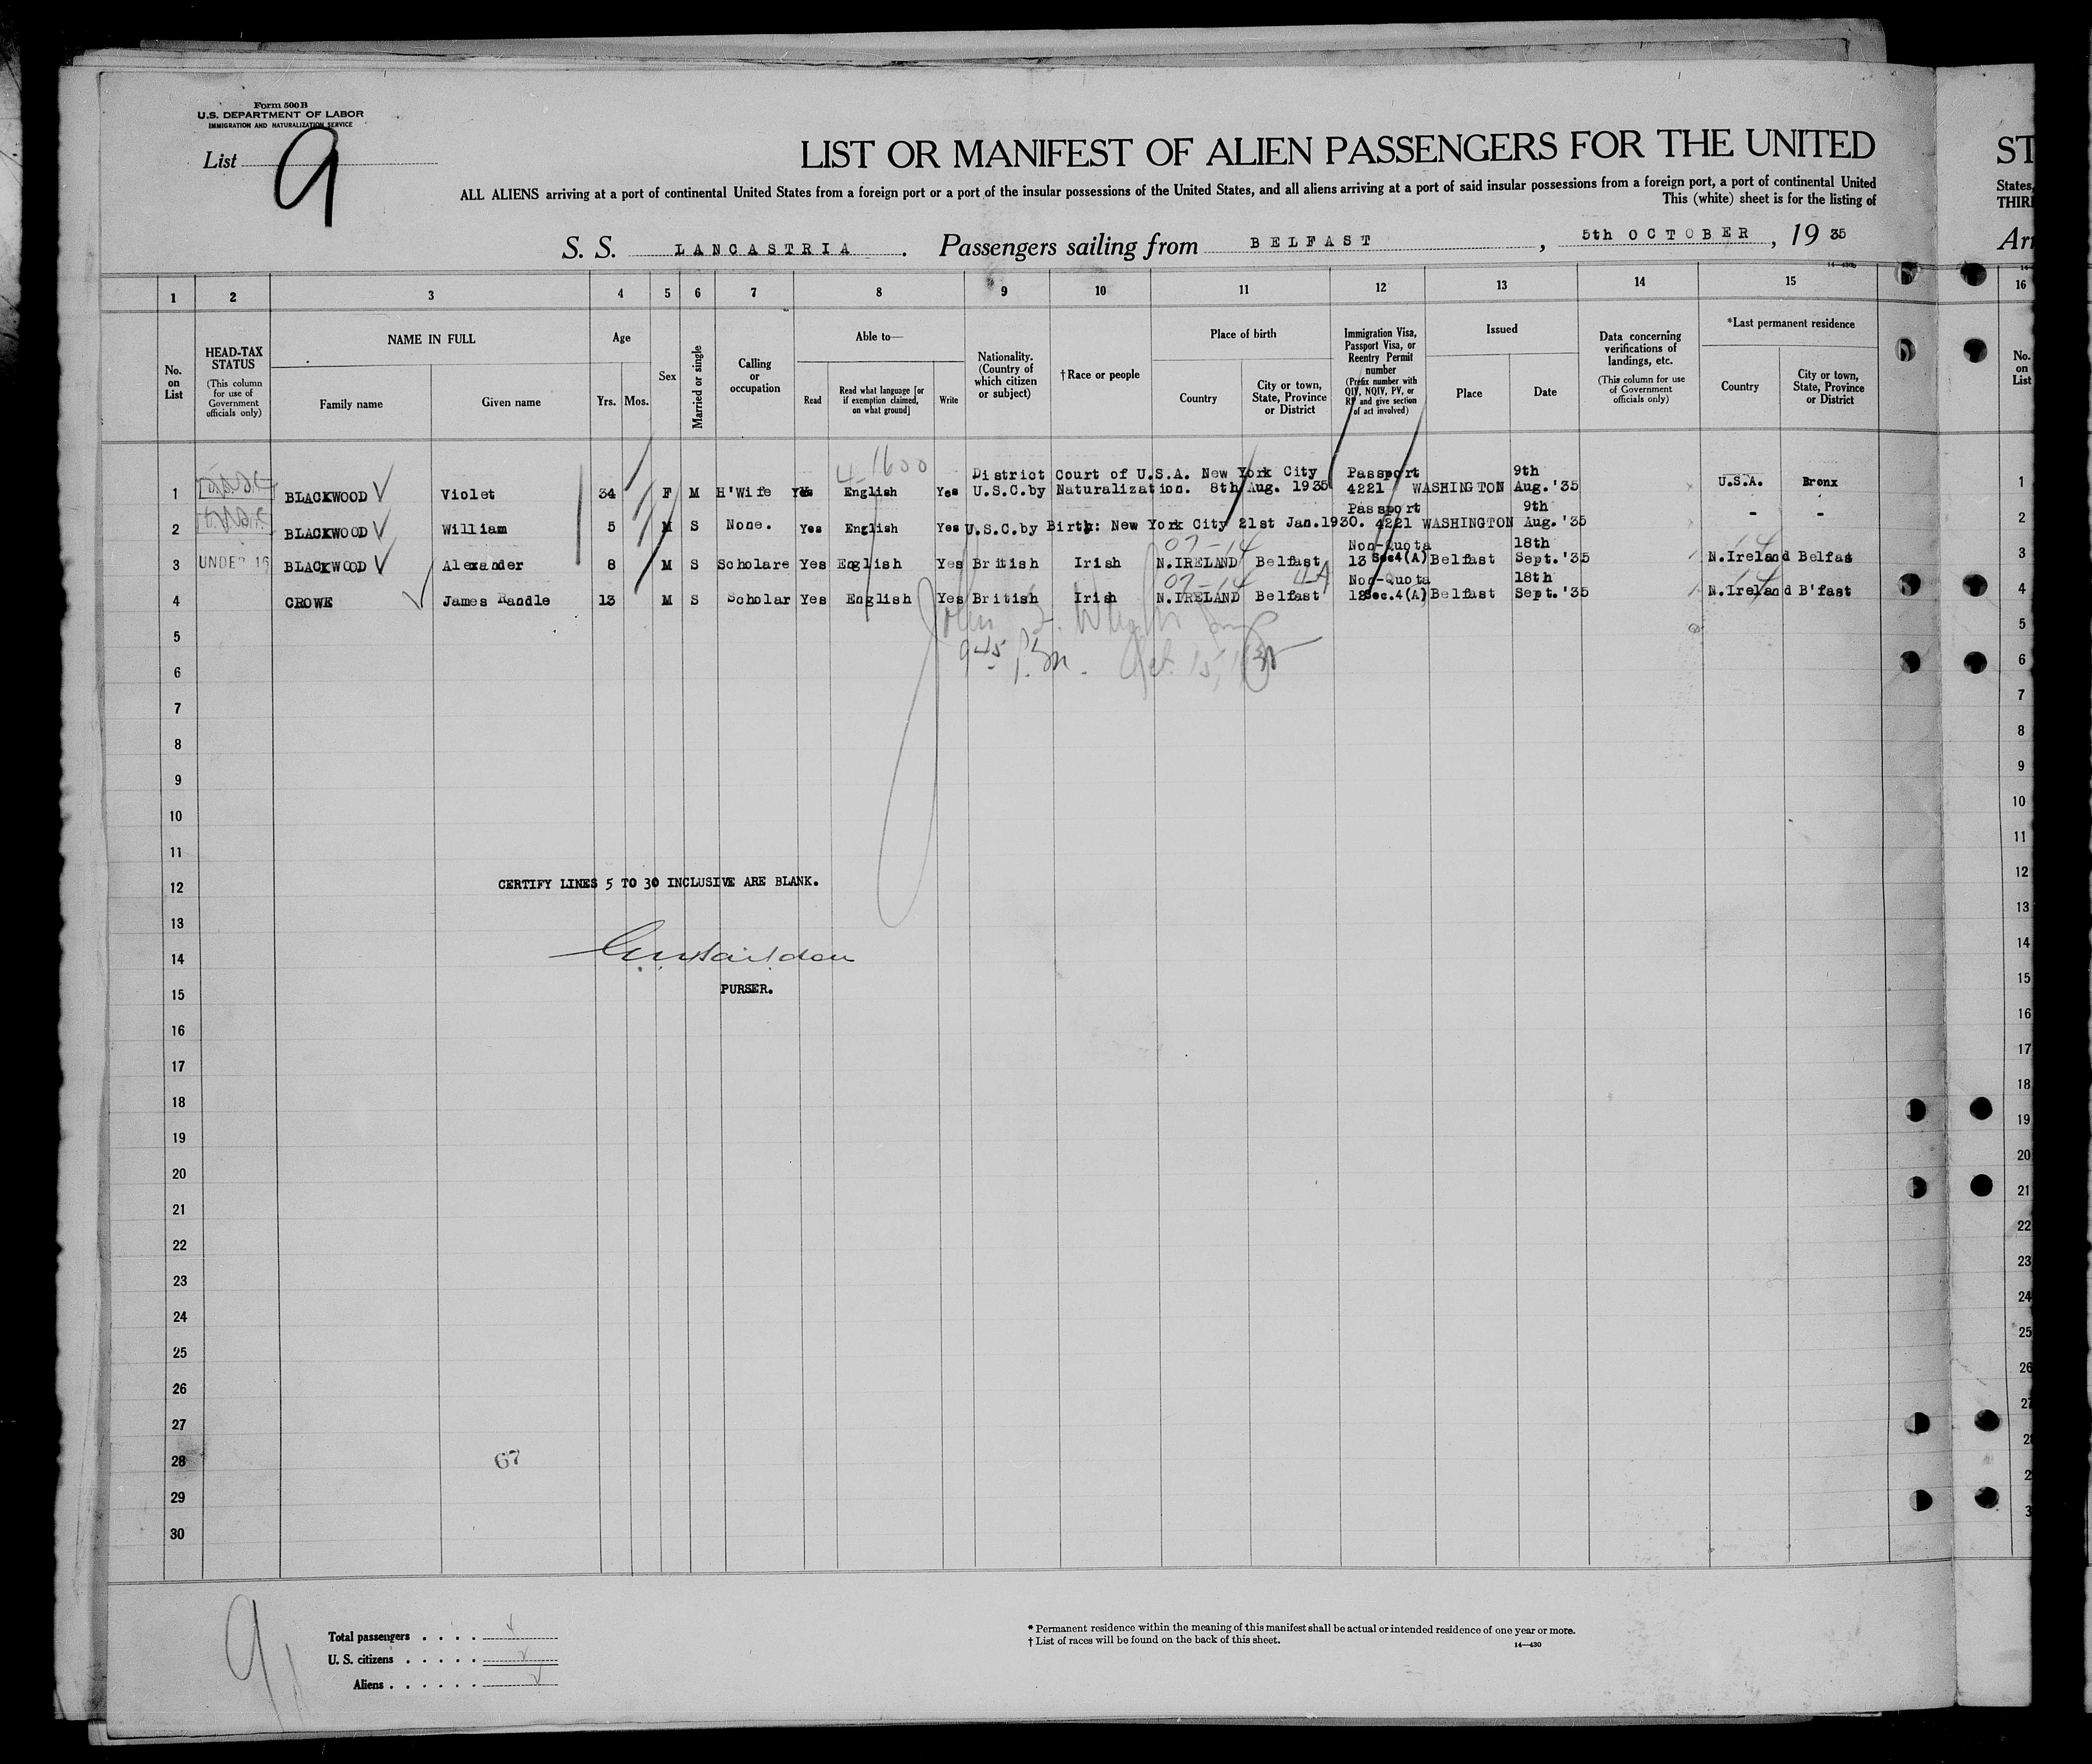 Form 500 B
U.S. DEPARTMENT OF LABOR
IMMIGRATION AND NATURALIZATION SERVICE
List 9
LIST OR MANIFEST OF ALIEN PASSENGERS FOR THE UNITED
ST
ALL ALIENS arriving at a port of continental United States from a foreign port or a port of the insular possessions of the United States, and all aliens arriving at a port of said insular possessions from a foreign port, a port of continental United
States,
This (white) sheet is for the listing of
THIR
S. S. LANCASTRIA. Passengers sailing from BELFAST, 5th OCTOBER, 19 35
Arr
14—430b
1 2 3 4 5 6 7 8 9 10 11 12 13 14 15 16
No. on List
HEAD-TAX STATUS
(This column for use of Government officials only)
NAME IN FULL
Family name
Given name
Age
Yrs. Mos.
Sex
Married or single
Calling or occupation
Able to—
Read
Read what language [or if exemption claimed, on what ground]
Write
Nationality. (Country of which citizen or subject)
†Race or people
Place of birth
Country
City or town, State, Province or District
Immigration Visa, Passport Visa, or Reentry Permit number
(Prefix number with QIV, NQIV, PV, or RP and give section of act involved)
Issued
Place
Date
Data concerning verifications of landings, etc.
(This column for use of Government officials only)
*Last permanent residence
Country
City or town, State, Province or District
No. on List
4-1600
District Court of U.S.A. New York City Passport 9th
1 BLACKWOOD Violet 34 F M H'Wife Yes English Yes U.S.C.by Naturalization. 8th Aug. 1935 4221 WASHINGTON Aug.'35 U.S.A. Bronx 1
Passport 9th
2 BLACKWOOD William 5 M S None. Yes English Yes U.S.C.by Birth: New York City 21st Jan.1930. 4221 WASHINGTON Aug.'35 - - 2
07-14 Non-Quota 18th 14
3 UNDER 16 BLACKWOOD Alexander 8 M S Scholare Yes English Yes British Irish N.IRELAND Belfast 13 Sec4(A) Belfast Sept.'35 N.Ireland Belfas 3
07-14 4A Non-Quota 18th 14
4 CROWE James Randle 13 M S Scholar Yes English Yes British Irish N.IRELAND Belfast 12Sec.4(A) Belfast Sept.'35 N.Ireland B'fast 4
5 5
945 P.m. Oct. 15,
6 6
7 7
8 8
9 9
10 10
11 11
12 CERTIFY LINES 5 TO 30 INCLUSIVE ARE BLANK. 12
13 13
14 14
15 PURSER. 15
16 16
17 17
18 18
19 19
20 20
21 21
22 22
23 23
24 24
25 25
26 26
27 27
28 67 28
29 2
30 3
9
Total passengers . . . . 4
U. S. citizens . . . . . 2
Aliens . . . . . . 2
* Permanent residence within the meaning of this manifest shall be actual or intended residence of one year or more.
† List of races will be found on the back of this sheet.
14—430